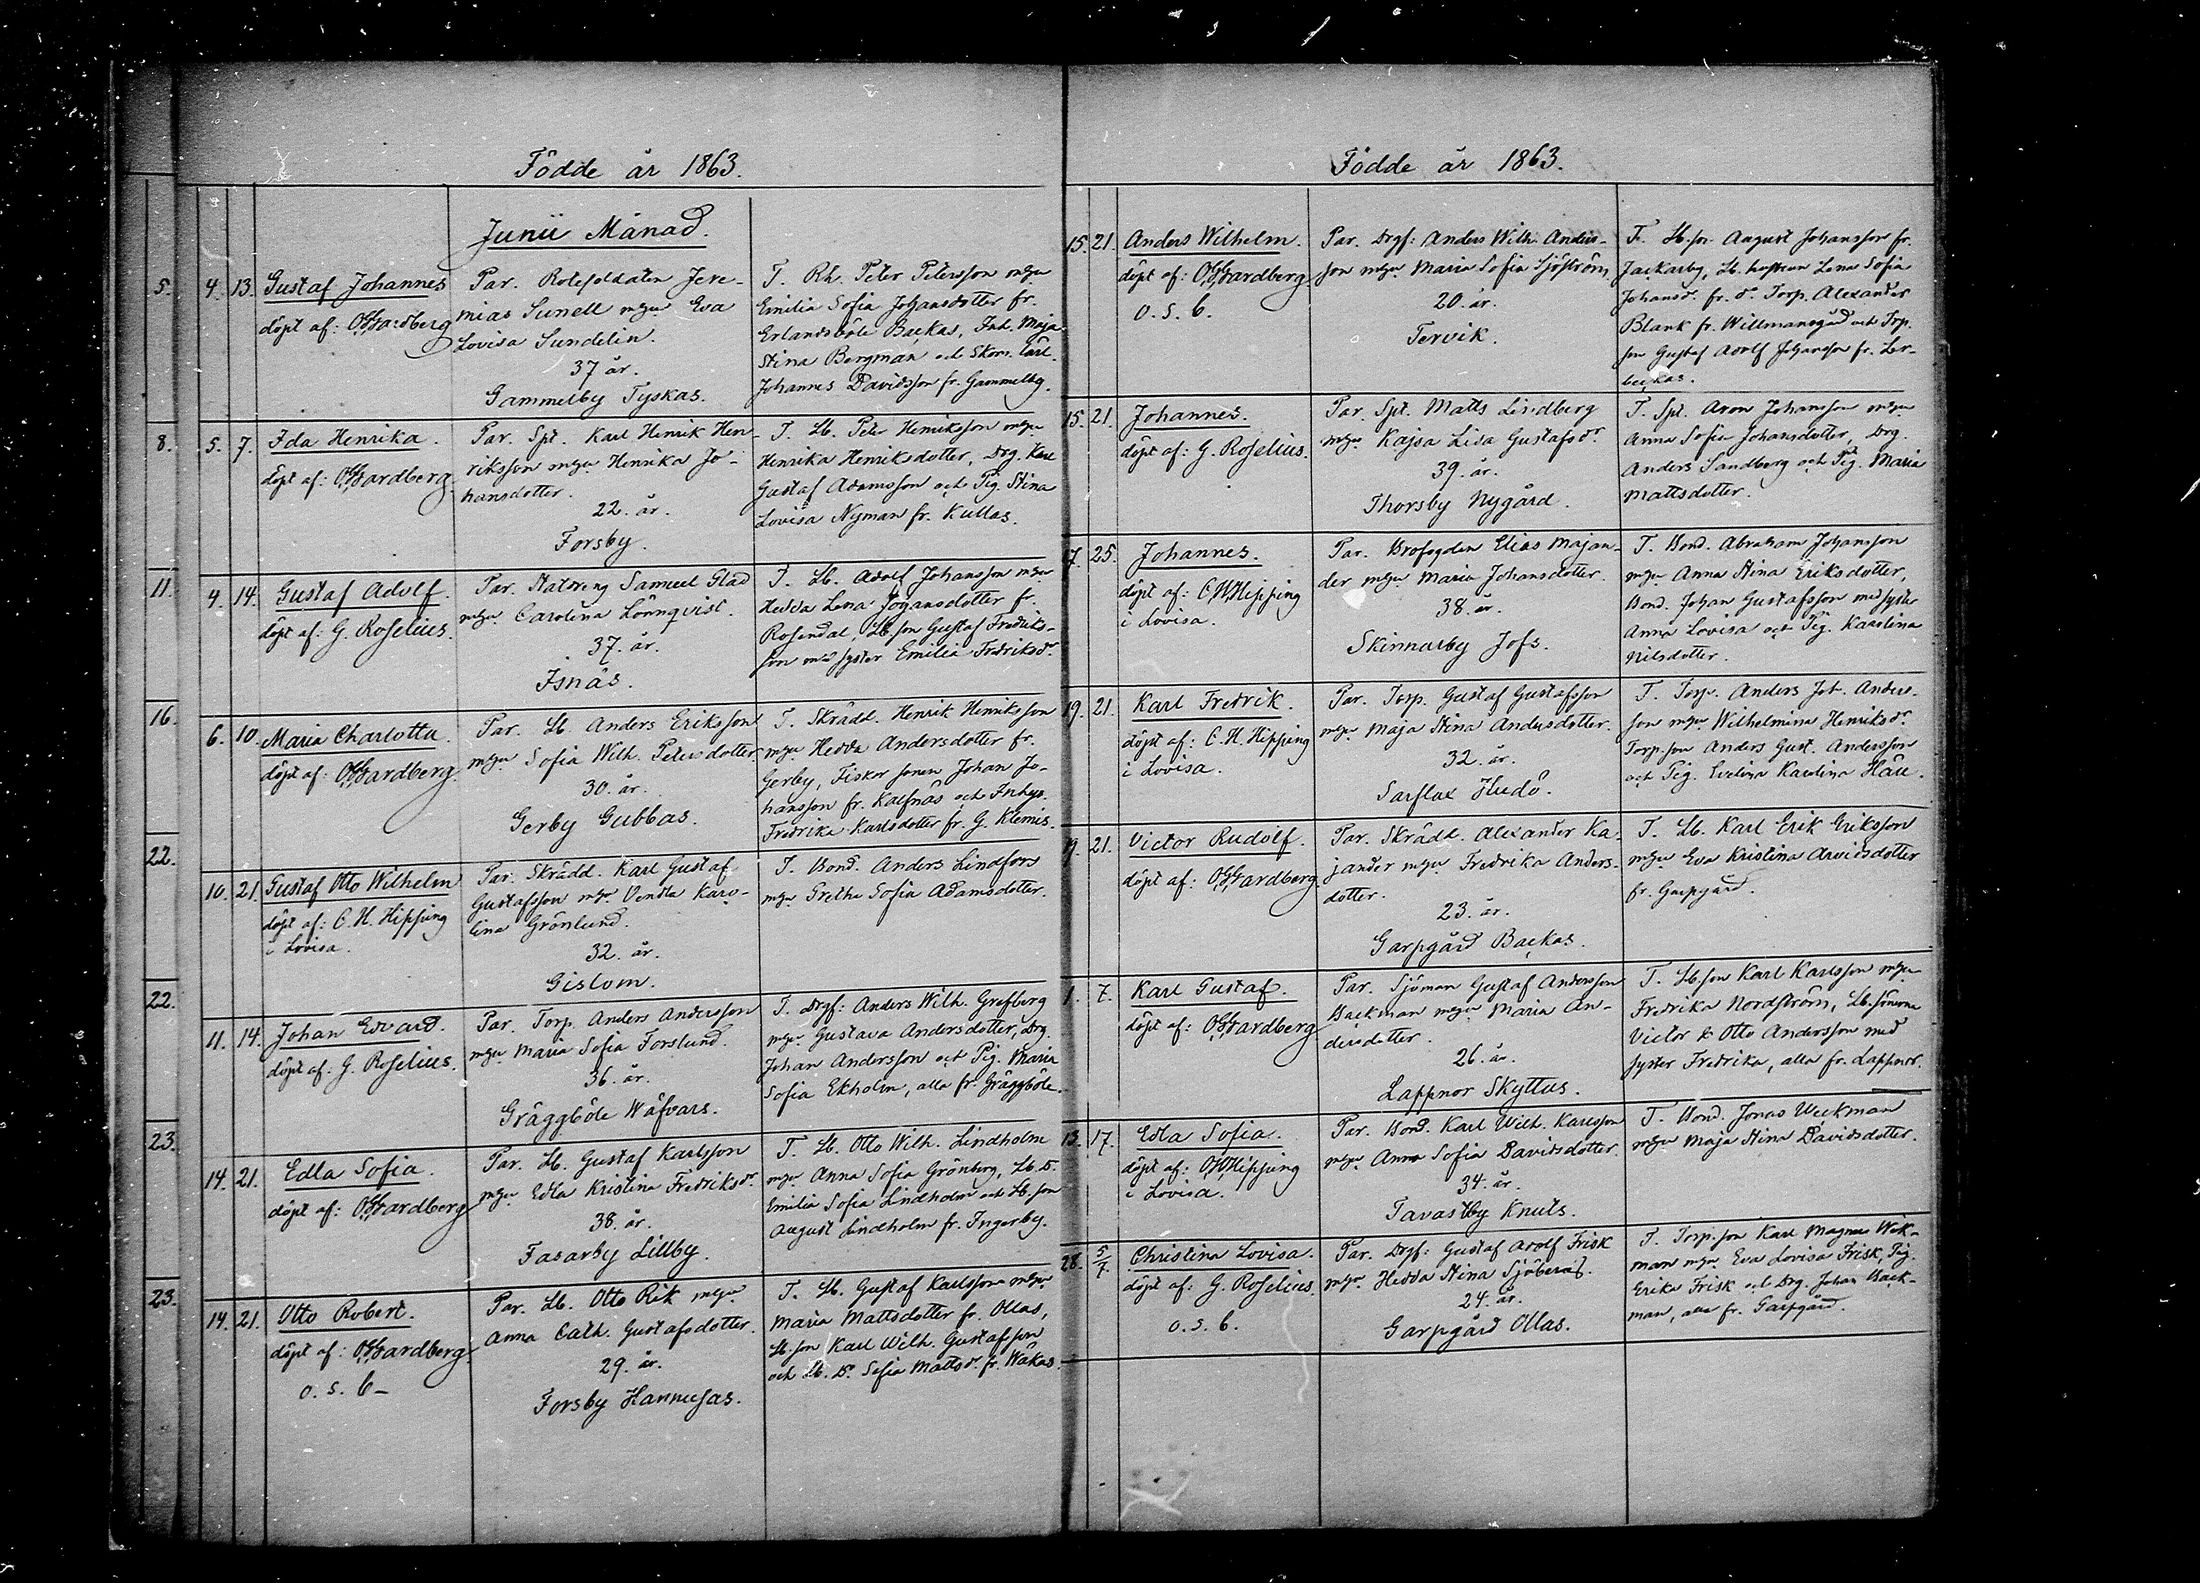 Födde år 1863.
Junii Månad.
5.
4. 13. Gustaf Johannes
döpt af: O. Gardberg
Par. Rotesoldaten Jere-
mias Sunell m hu Eva
Lovisa Sundelin.
37 år.
Gammelby Tyskas.
T. Rh. Peter Petersson m hu
Emilia Sofia Johansdotter fr.
Erlandsböle Backas, Inh. Maja
Stina Bergman och Skom. Carl
Johannes Davidsson fr. Gammelby.
8.
5. 7. Ida Henrika.
döpt af: O. Gardberg
Par. Spt. Karl Henrik Hen-
riksson m hu Henrika Jo-
hansdotter.
22. år.
Forsby.
T. Lb. Peter Henriksson m hu
Henrika Henriksdotter, Drg. Karl
Gustaf Adamsson och Pig. Stina
Lovisa Nyman fr. Kullas.
11.
4. 14. Gustaf Adolf.
döpt af: G. Roselius.
Par. Statdreng Samuel Glad
m hu Carolina Lönnqvist.
37. år.
Isnäs.
T. Lb. Adolf Johansson m hu
Hedda Lena Johansdotter fr.
Rosendal, Lb. son Gustaf Fredriks-
son med syster Emilia Fredriksdr.
16.
6. 10. Maria Charlotta.
döpt af: O. Gardberg.
Par. Lb. Anders Eriksson
m hu Sofia Wilh. Petersdotter
30. år.
Gerby Gubbas.
T. Skrädd. Henrik Henriksson
m hu Hedda Andersdotter fr.
Gerby, Fiskar sonen Johan Jo-
hansson fr. Kalfnäs och Inhys.
Fredrika Karlsdotter fr. G. Klemis.
22.
10. 21. Gustaf Otto Wilhelm
döpt af: C. H. Hipping
i Lovisa.
Par. Skrädd. Karl Gustaf
Gustafsson m hu Vendla Karo-
lina Grönlund.
32. år.
Gislom.
T. Bond. Anders Lindfors
m hu Gretha Sofia Adamsdotter.
22.
11. 14. Johan Edvard.
döpt af. G. Roselius.
Par. Torp. Anders Andersson
m hu Maria Sofia Forslund.
36. år.
Gräggböle Wäfvars.
T. Drgf: Anders Wilh. Grefberg
m hu Gustava Andersdotter, Drg.
Johan Andersson och Pig. Maria
Sofia Ekholm, alla fr. Gräggböle.
23.
14. 21. Edla Sofia.
döpt af: O. Gardberg
Par. Lb. Gustaf Karlsson
m hu Edla Kristina Fredriksdr.
38. år.
Fasarby Lillby.
T. Lb. Otto Wilh. Lindholm
m hu Anna Sofia Grönberg, Lb. D.
Emilia Sofia Lindholm och Lb. son
August Lindholm fr. Ingerby.
23.
14. 21. Otto Robert.
döpt af: O. Gardberg
o. s. b-
Par. Lb. Otto Rik m hu
Anna Cath. Gustafsdotter.
29. år.
Forsby Hannusas.
T. Lb. Gustaf Karlsson m hu
Maria Mattsdotter fr. Ollas,
Lb. son Karl Wilh. Gustafsson
och Lb. D. Sofia Mattsdr. fr. Wäkas.
Födde år 1863.
15. 21. Anders Wilhelm.
döpt af: O. Gardberg
o. s. b.
Par. Drgf: Anders Wilh. Anders-
son m hu Maria Sofia Sjöström
20. år.
Tervik.
T. Lb. son August Johansson fr.
Jackarby, Lb. hustrun Lena Sofia
Johansdr. fr. do. Torp. Alexander
Blank fr. Willmansgård och Torp.
son Gustaf Adolf Johansson fr. Ler-
backas.
15. 21. Johannes.
döpt af: G. Roselius.
Par. Spt. Matts Lindberg
m hu Kajsa Lisa Gustafsdr.
39. år.
Thorsby Nygård.
T. Spt. Aron Johansson m hu
Anna Sofia Johansdotter, Drg.
Anders Sandberg och Pig. Maria
Mattsdotter.
7. 25. Johannes.
döpt af: C. H. Hipping
i Lovisa.
Par. Brofogden Elias Majan-
der m hu Maria Johansdotter.
38. år.
Skinnarby Jofs.
T. Bond. Abraham Johansson
m hu Anna Stina Eriksdotter,
Bond. Johan Gustafsson med syster
Anna Lovisa och Pig. Karolina
Nilsdotter.
19. 21. Karl Fredrik.
döpt af: C. H. Hipping
i Lovisa.
Par. Torp. Gustaf Gustafsson
m hu Maja Stina Andersdotter.
32. år.
Sarflax Hudö.
T. Torp. Anders Joh. Anders-
son m hu Wilhelmina Henriksdr.
Torp. son Anders Gust. Andersson
och Pig. Evelina Karolina Häll.
9. 21. Victor Rudolf.
döpt af: O. Gardberg
Par. Skrädd. Alexander Ka-
jander m hu Fredrika Anders-
dotter.
23. år.
Garpgård Backas.
T. Lb. Karl Erik Eriksson
m hu Eva Kristina Arvidsdotter
fr. Garpgård.
1. 7. Karl Gustaf.
döpt af: O. Gardberg
Par. Sjöman Gustaf Andersson
Backman m hu Maria An-
dersdotter.
26. år.
Lappnor Skyttus.
T. Lb. son Karl Karlsson m hu
Fredrika Nordström, Lb. sönerna
Victor & Otto Andersson med
syster Fredrika, alla fr. Lappnor.
13. 17. Edla Sofia.
döpt af: C. H. Hipping
i Lovisa.
Par. Bond. Karl Wilh. Karlsson
m hu Anna Sofia Davidsdotter.
34. år.
Tavastby Knuts.
T. Bond. Jonas Weckman
m hu Maja Stina Davidsdotter.
28. 5/7 Christina Lovisa.
döpt af: G. Roselius.
o. s. b.
Par. Drgf: Gustaf Adolf Frisk
m hu Hedda Stina Sjöberg.
24. år.
Garpgård Ollas.
T. Torp. son Karl Magnus Wek-
man m hu Eva Lovisa Frisk, Pig.
Erika Frisk och Drg. Johan Back-
man, alla fr. Garpgård.